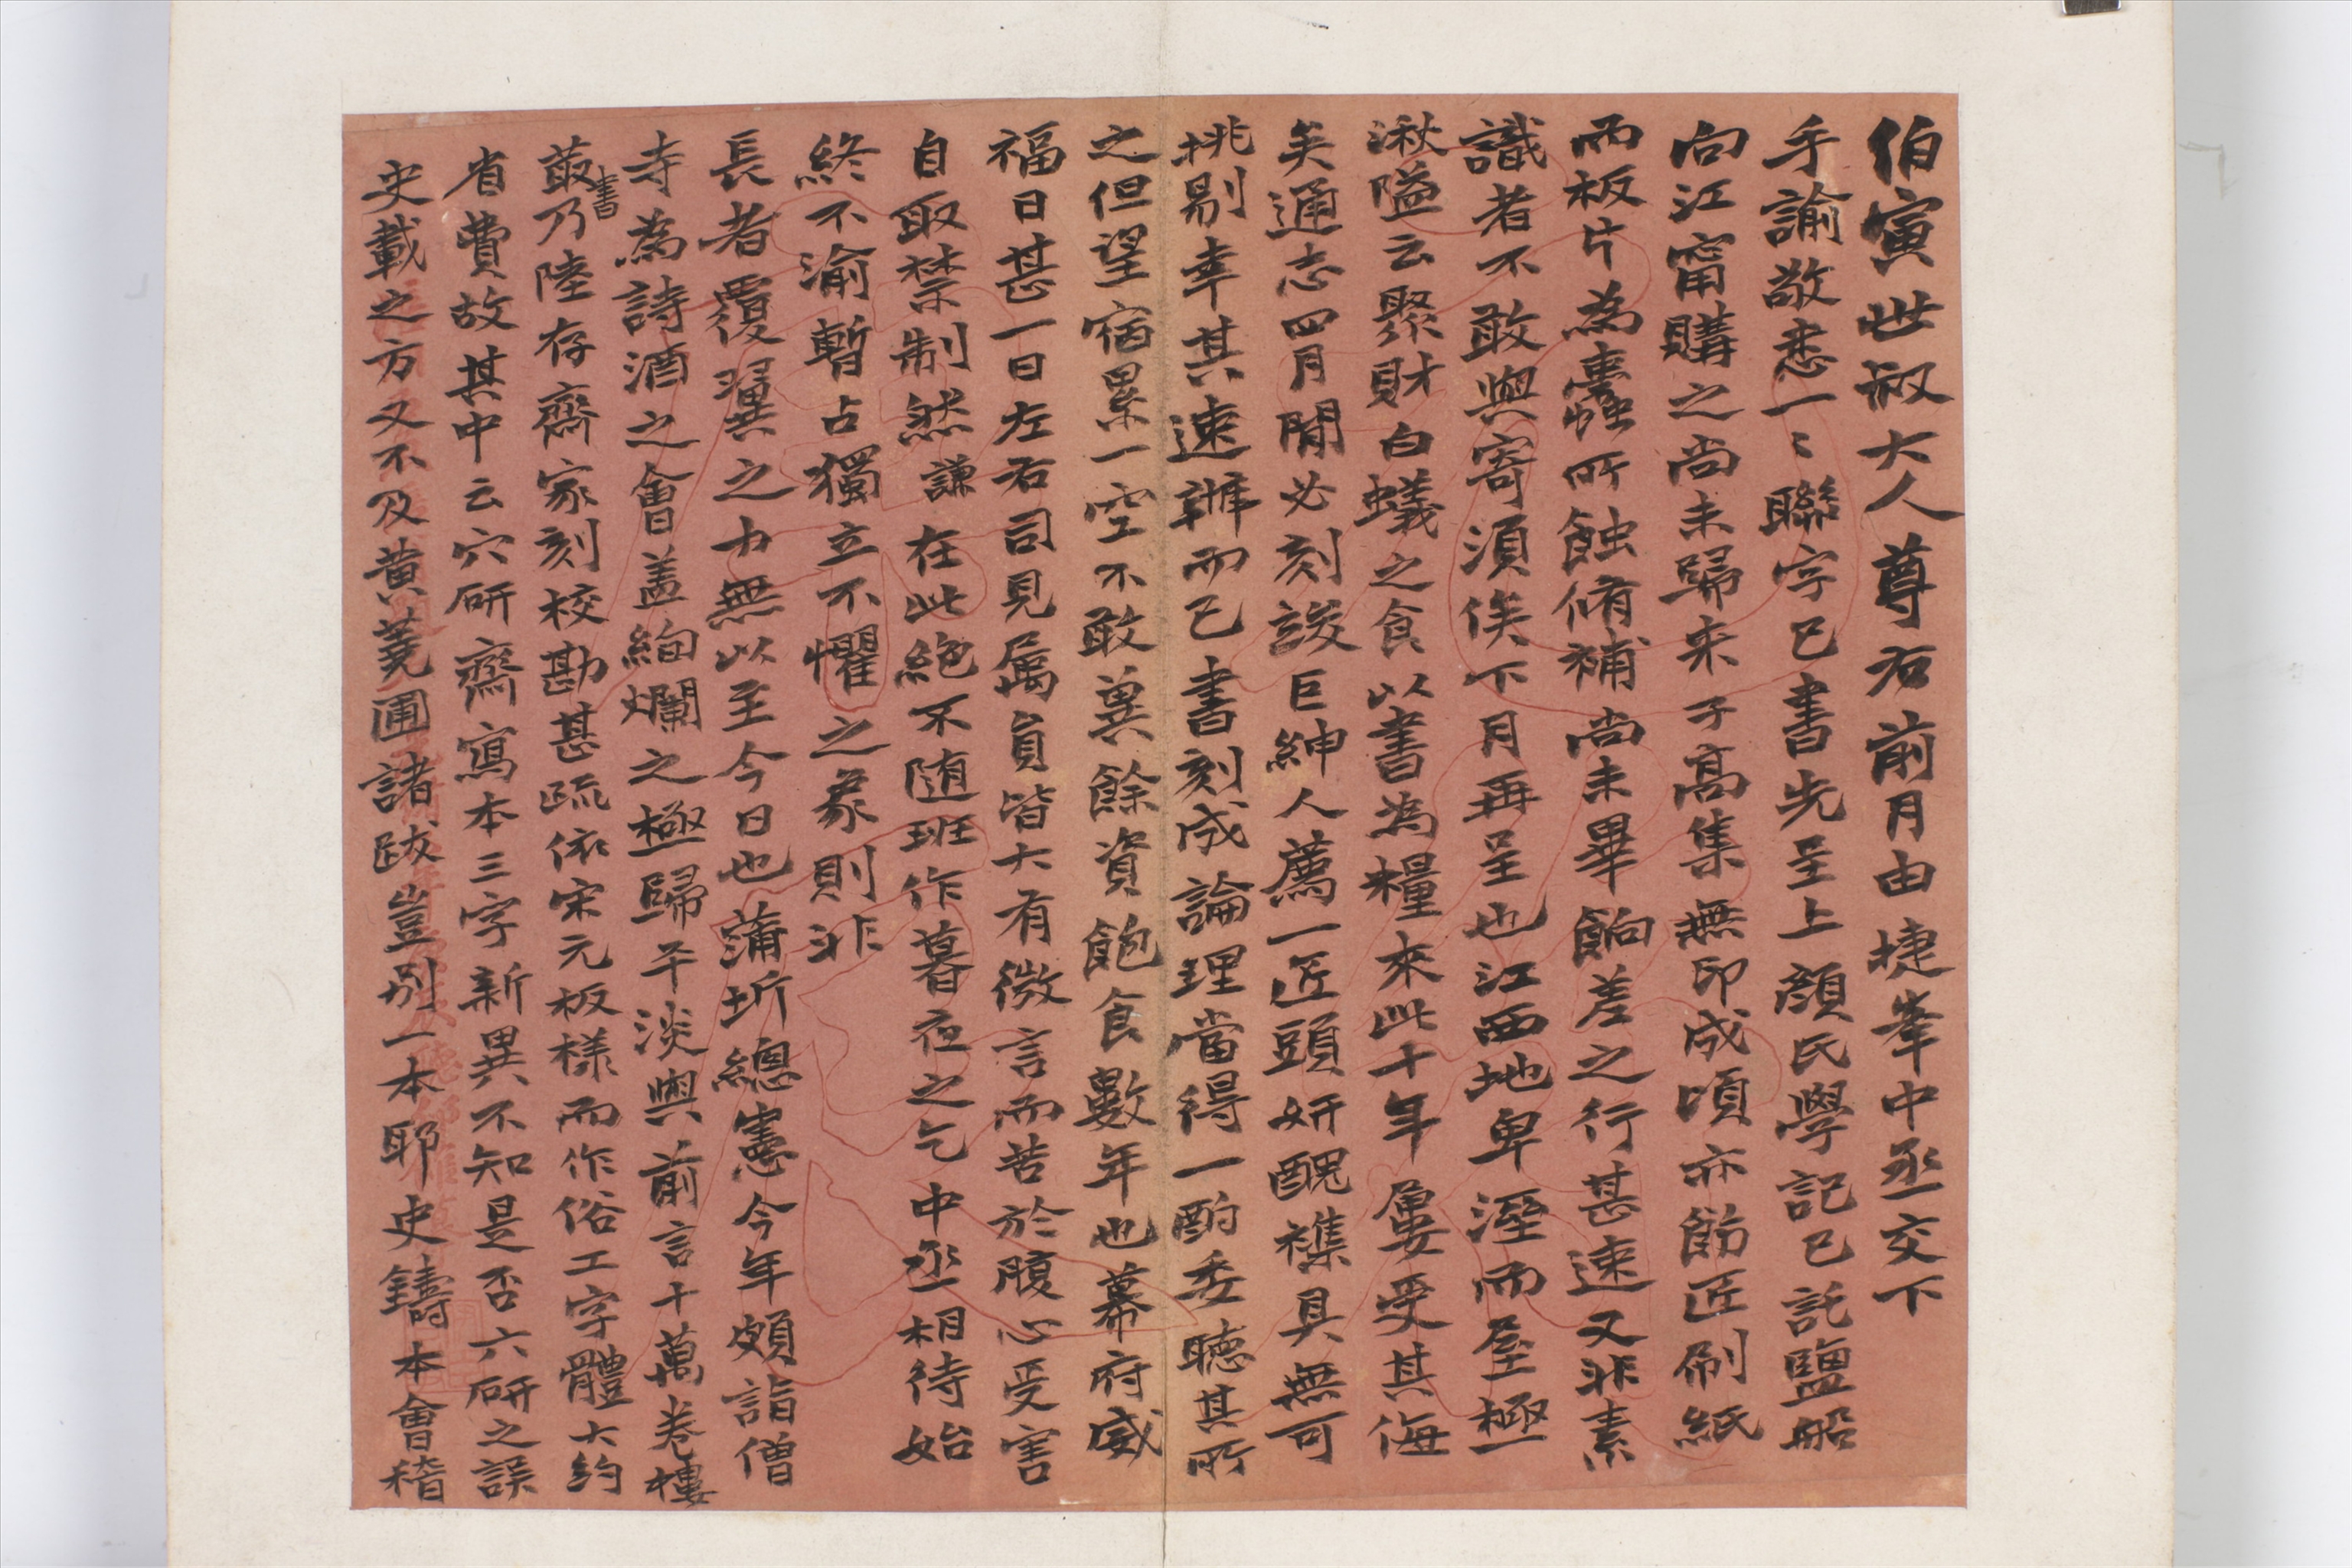 伯寅世叔大人尊右前月由捷峯中丞交下
手諭敬悉一〻聯字已書先呈上顏氏學記已託鹽船
向江甯購之尚未歸来子高集無印成頃亦飭匠刷紙
而板片為蠹所蝕脩補尚未畢餉差之行甚速又非素
識者不敢與寄須俟下月再呈也江西地卑溼而屋極
湫隘云聚財白蟻之食以書為糧來此十年屢受其侮
矣通志四月間必刻竣巨紳人薦一匠頭妍醜襍具無可
挑剔幸其速辦而已書刻成論理當得一酌委聽其所
之但望宿累一空不敢冀餘資飽食數年也幕府威
福日甚一日左右司見属員皆大有微言而苦於腹心受害
自取禁制然謙在此絕不随班作暮夜之乞中丞相待始
終不渝暫占獨立不懼之象則非
長者覆翼之力無以至今日也蒲圻總憲今年頗詣僧
寺為詩酒之會盖絢爛之極歸平淡與前言十萬卷樓
叢書乃陸存齋家刻校勘甚疏依宋元板様而作俗工字體大約
省費故其中云穴研齋寫本三字新異不知是否六研之誤
史載之方又不及黄蕘圃諸跋豈别一本耶史鑄本會稽